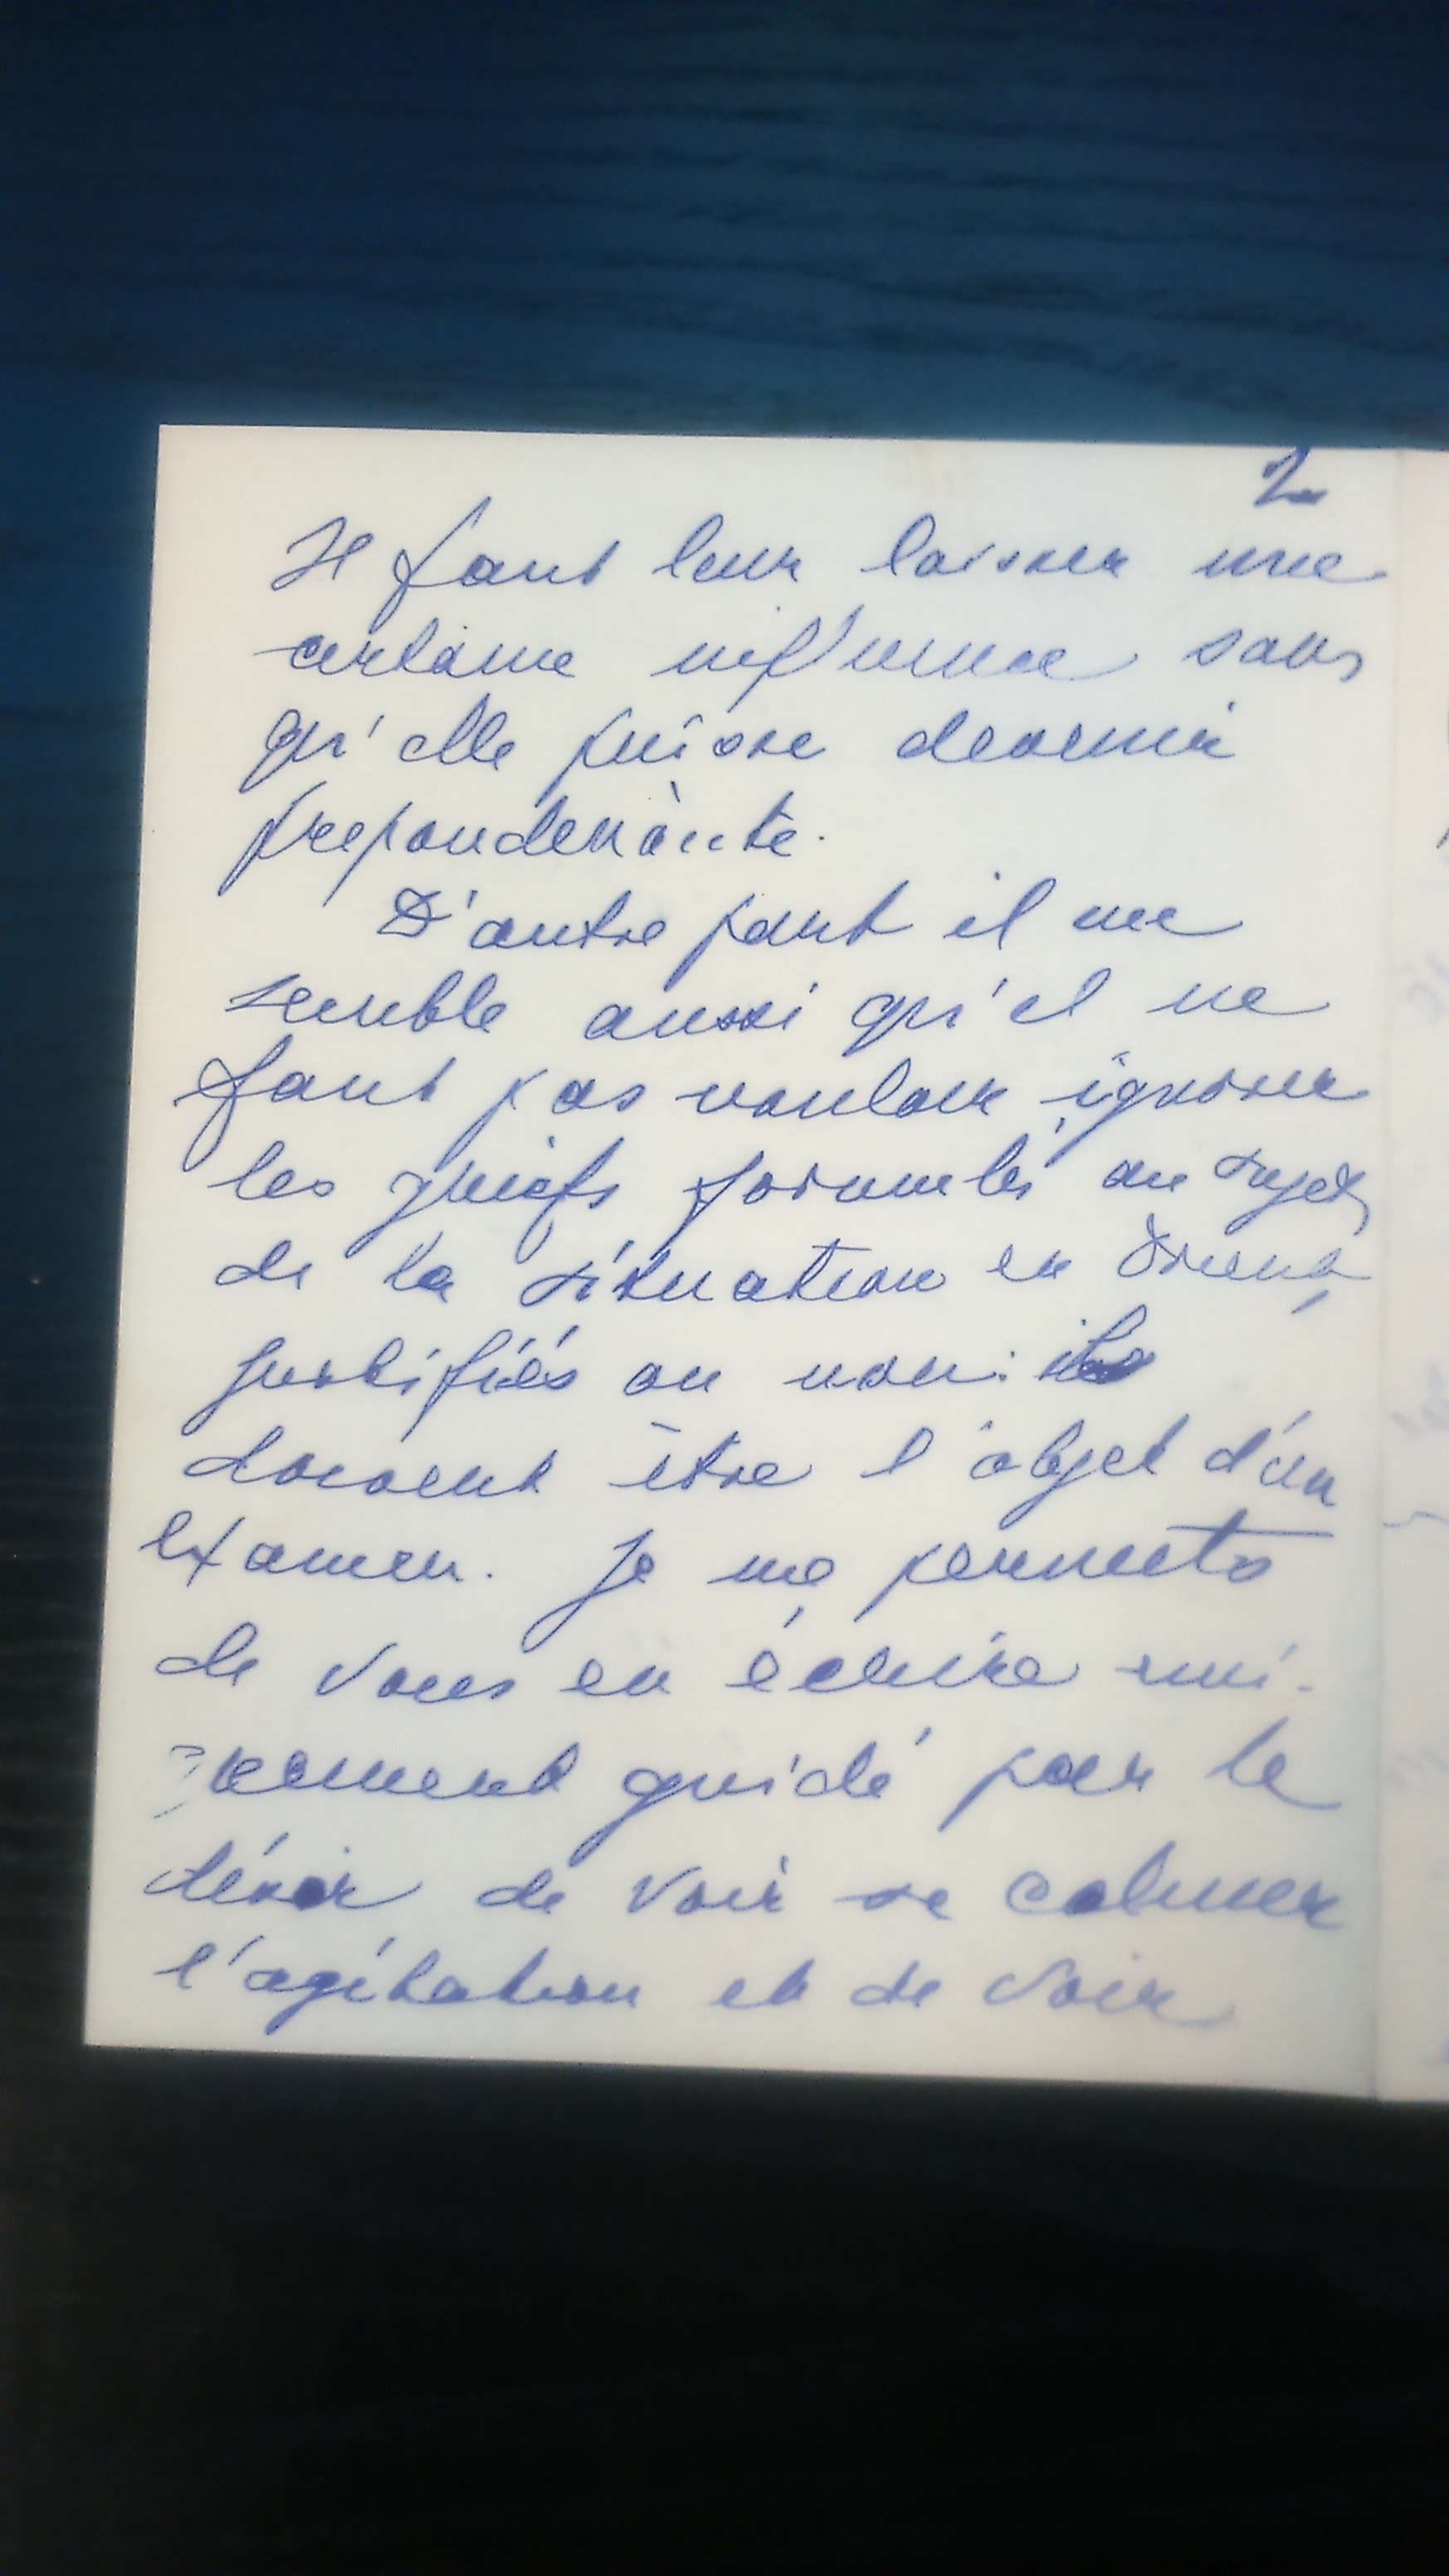 2
Il faut leur laisser une
certaine influence sans
qu'elle puisse devenir
preponderante.
D'autre part il me
semble aussi qu'il ne
faut pas vouloir ignorer
les griefs formulés au sujet
de la situation en Orient,
justifiés ou non: ils
doivent être l'objet d'un
examen. Je me permets
de vous en écrire uni-
quement guidé par le
désir de voir se calmer
l'agitation et de voir